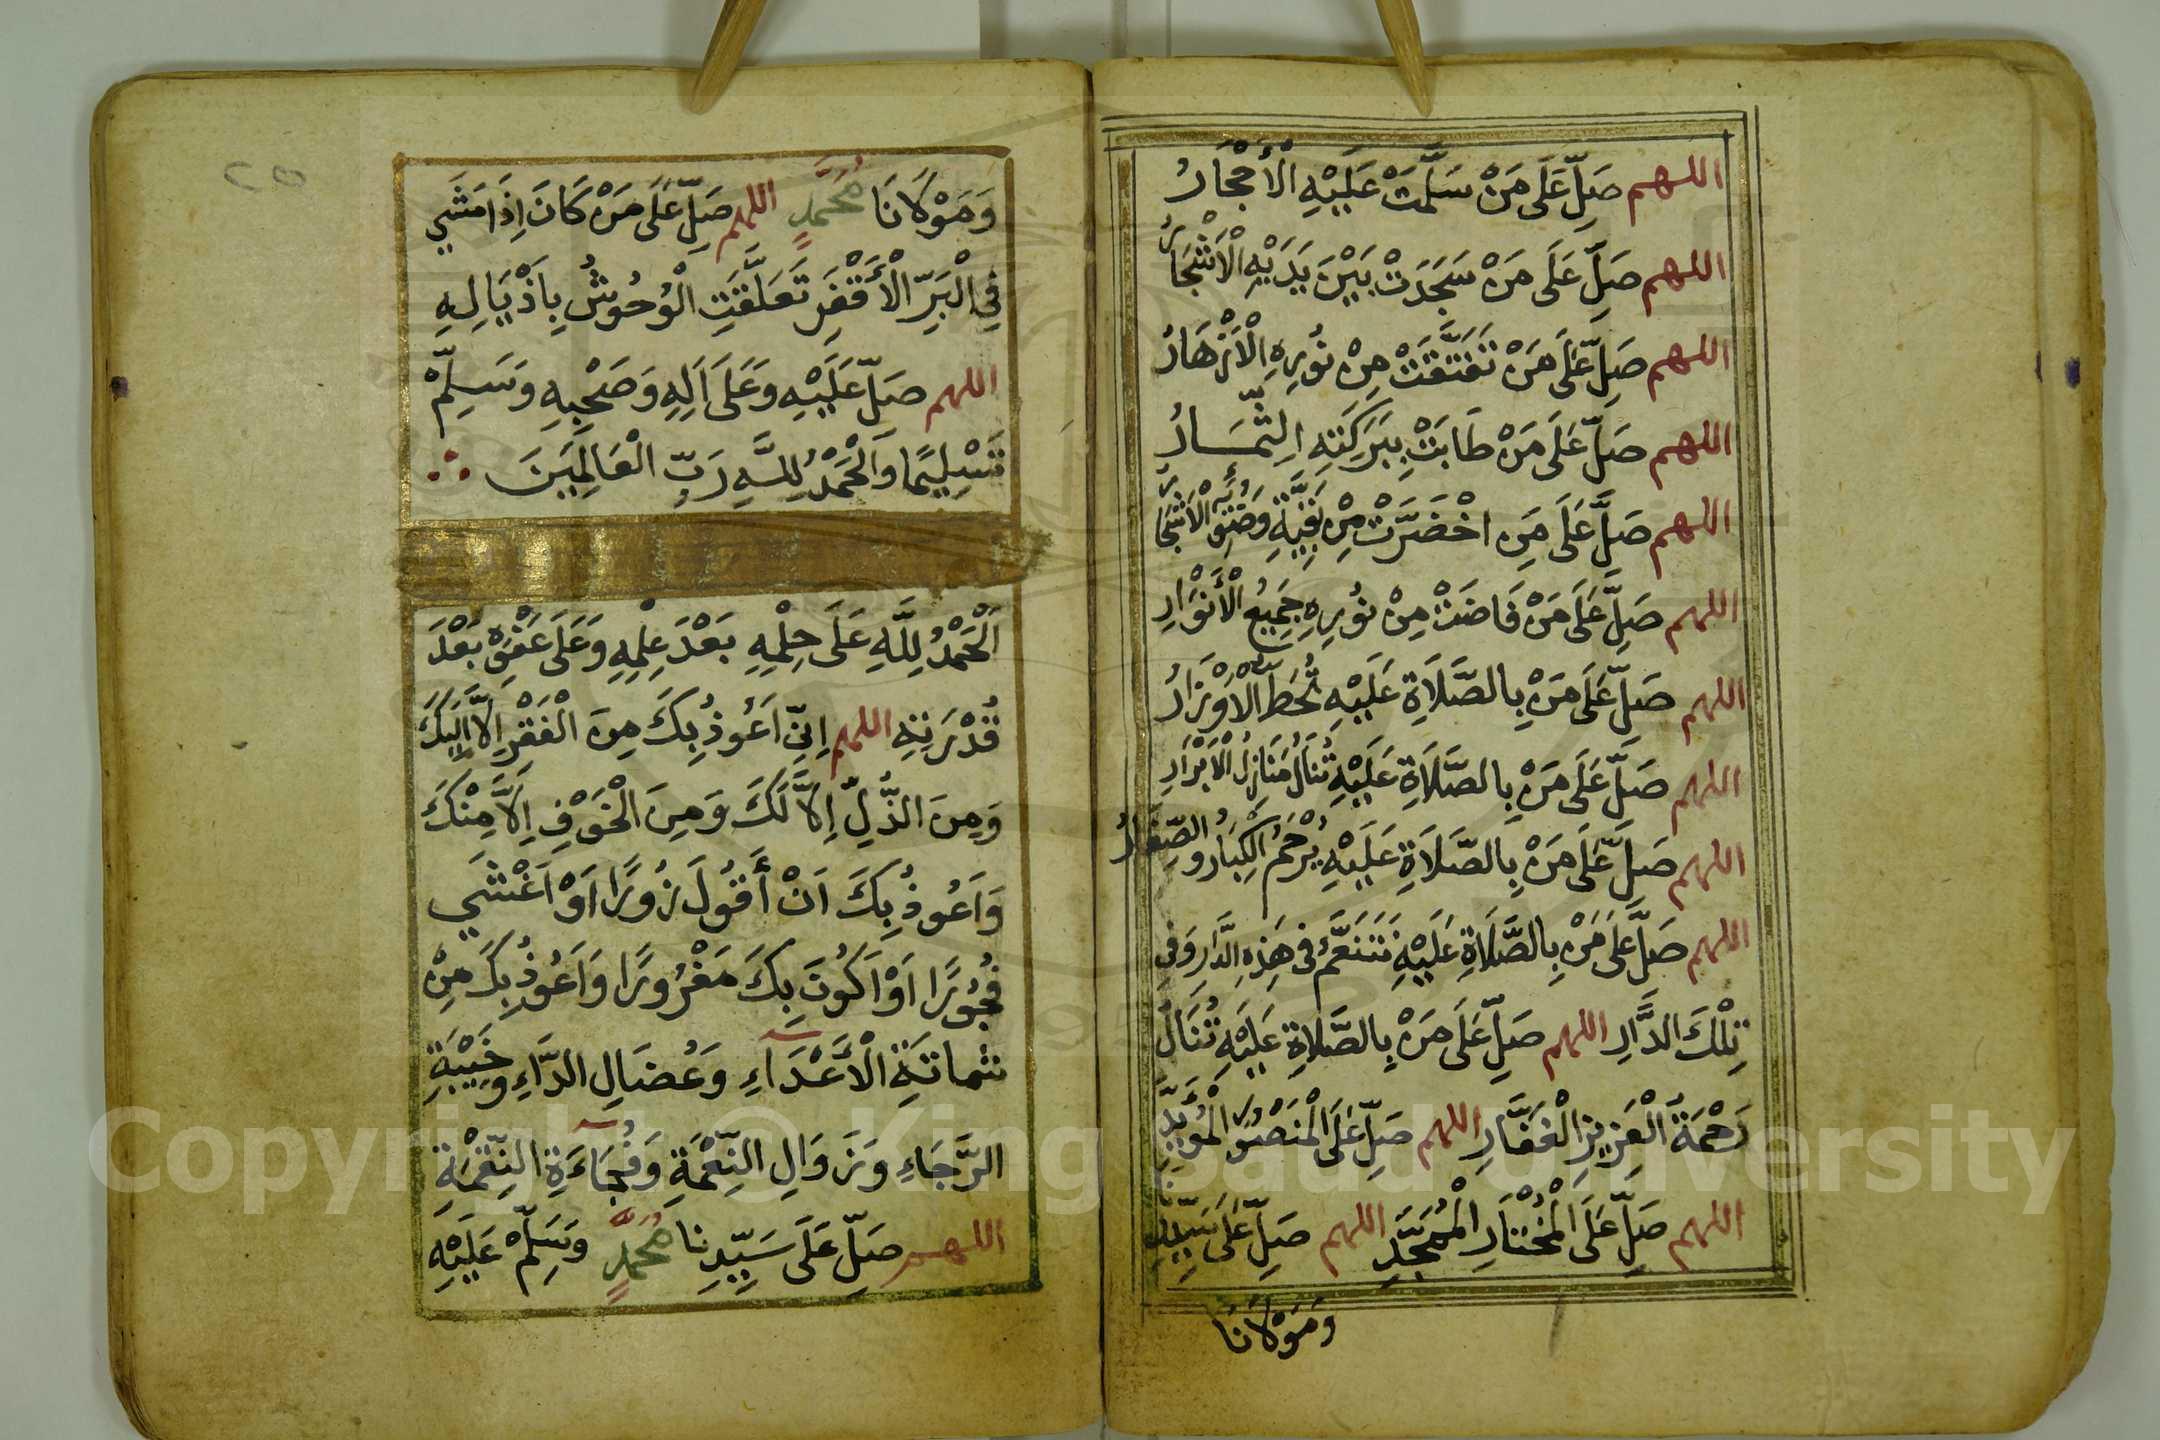 اللهم صَلِّ عَلَى مَنْ سَلَّمَتْ عَلَيْهِ الْأَحْجَارُ
اللهم صَلِّ عَلَى مَنْ سَجَدَتْ بَيْنَ يَدَيْهِ الْأَشْجَارُ
اللهم صَلِّ عَلَى مَنْ تَفَتَّقَتْ مِنْ نُورِهِ الْأَزْهَارُ
اللهم صَلِّ عَلَى مَنْ طَابَتْ بِبَرَكَتِهِ الثِّمَارُ
اللهم صَلِّ عَلَى مَنِ اخْضَرَّتْ مِنْ بَقِيَّةِ وَضُوئِهِ الْأَشْجَارُ
اللهم صَلِّ عَلَى مَنْ فَاضَتْ مِنْ نُورِهِ جَمِيعُ الْأَنْوَارِ
اللهم صَلِّ عَلَى مَنْ بِالصَّلَاةِ عَلَيْهِ تُحَطُّ الْأَوْزَارُ
اللهم صَلِّ عَلَى مَنْ بِالصَّلَاةِ عَلَيْهِ تُنَالُ مَنَازِلُ الْأَبْرَارِ
اللهم صَلِّ عَلَى مَنْ بِالصَّلَاةِ عَلَيْهِ يُرْحَمُ الْكِبَارُ وَالصِّغَارُ
اللهم صَلِّ عَلَى مَنْ بِالصَّلَاةِ عَلَيْهِ نَتَنَعَّمُ فِي هَذِهِ الدَّارِ وَفِي
تِلْكَ الدَّارِ اللهم صَلِّ عَلَى مَنْ بِالصَّلَاةِ عَلَيْهِ تُنَالُ
رَحْمَةُ الْعَزِيزِ الْغَفَّارِ اللهم صَلِّ عَلَى الْمَنْصُورِ الْمُؤَيَّدِ
اللهم صَلِّ عَلَى الْمُخْتَارِ الْمُمَجَّدِ اللهم صَلِّ عَلَى سَيِّدِنَا
وَمَوْلَانَا
وَمَوْلَانَا مُحَمَّدٍ اللهم صَلِّ عَلَى مَنْ كَانَ اِذَا مَشَي
فِي الْبَرِّ الْأَقْفَرِ تَعَلَّقَتِ الْوُحُوشُ بِاَذْيَالِهِ
اللهم صَلِّ عَلَيْهِ وَعَلَى اَلِهِ وَصَحْبِهِ وَسَلِّمْ
تَسْلِيمًا وَالْحَمْدُ لِلَّهِ رَبِّ الْعَالَمِينَ
اَلْحَمْدُ لِلَّهِ عَلَى حِلْمِهِ بَعْدَ عِلْمِهِ وَعَلَى عَفْوِهِ بَعْدَ
قُدْرَتِهِ اللهم اِنِّي اَعُوذُ بِكَ مِنَ الْفَقْرِ اِلَّا اِلَيْكَ
وَمِنَ الذُّلِّ اِلَّا لَكَ وَمِنَ الْخَوْفِ اِلَّا مِنْكَ
وَاَعُوذُ بِكَ اَنْ أَقُولَ زُورًا اَوْ اَغْشَي
فُجُورًا اَوْ اَكُونَ بِكَ مَغْرُورًا وَاَعُوذُ بِكَ مِنْ
شماتَةِ الْأَعْدَآءِ وَعُضَالِ الدَّاءِ وَخَيْبَةِ
الرَّجَاءِ وَزَوَالِ النِّعْمَةِ وَفُجَآءَةِ النِّقْمَةِ
اللهم صَلِّ عَلَى سَيِّدِنَا مُحَمَّدٍ وَسَلِّمْ عَلَيْهِ
Copyright © King Saud University